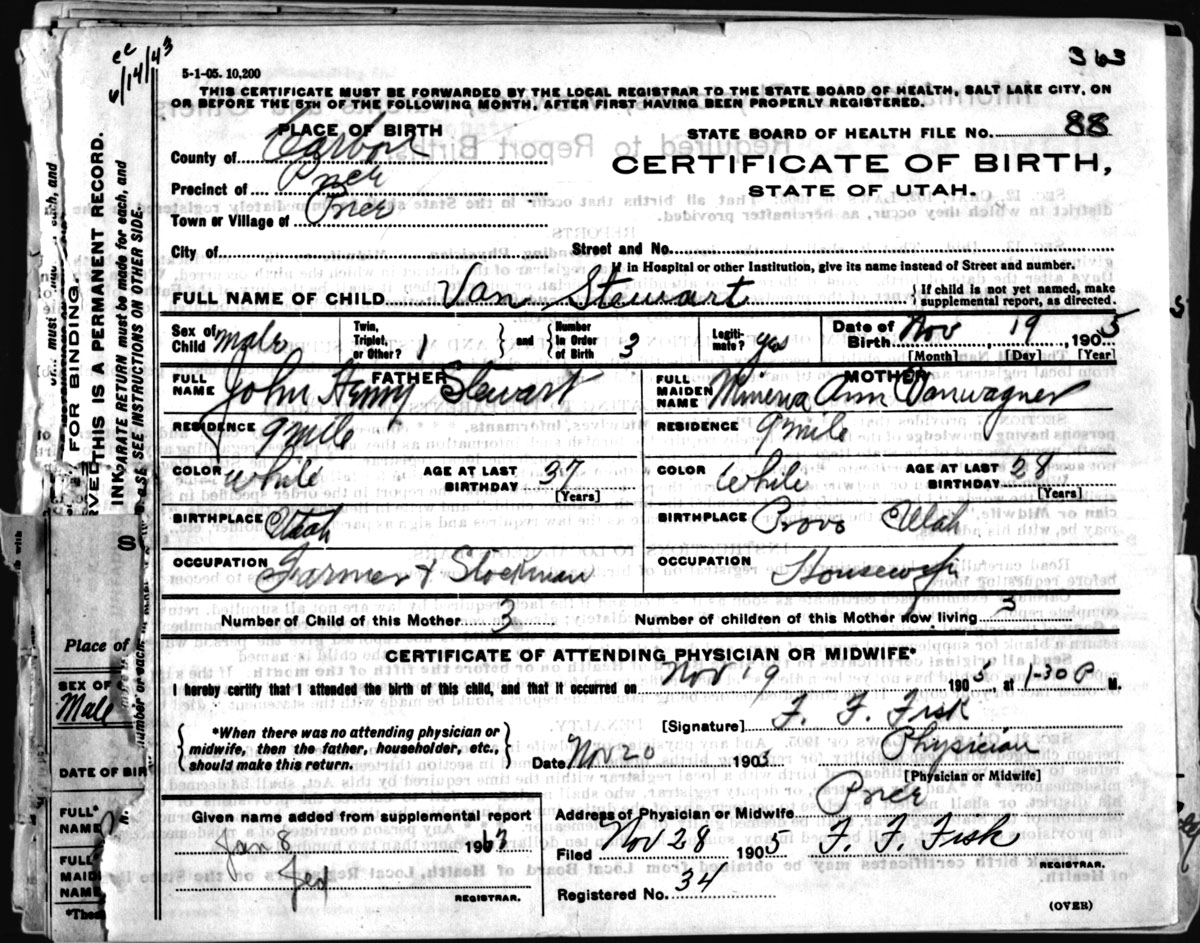 363
6/14/43
5-1-05. 10,200
THIS CERTIFICATE MUST BE FORWARDED BY THE LOCAL REGISTRAR TO THE STATE BOARD OF HEALTH, SALT LAKE CITY, ON
OR BEFORE THE 5TH OF THE FOLLOWING MONTH, AFTER FIRST HAVING BEEN PROPERLY REGISTERED.
PLACE OF BIRTH
STATE BOARD OF HEALTH FILE No. 88
County of Carbon
CERTIFICATE OF BIRTH,
Precinct of Price
STATE OF UTAH.
Town or Village of Price
City of
Street and No.
If in Hospital or other Institution, give its name instead of Street and number.
FULL NAME OF CHILD Van Stewart { If child is not yet named, make
supplemental report, as directed.
Sex of Child male Twin, Triplet, or Other? 1 } and { Number In Order of Birth 3 Legitimate? yes Date of Birth Nov 19, 1905
[Month] [Day] [Year]
FATHER
MOTHER
FULL NAME John Henry Stewart
FULL MAIDEN NAME Minerva Ann Vanwagner
RESIDENCE 9 mile
RESIDENCE 9 mile
COLOR White AGE AT LAST BIRTHDAY 37 [Years]
COLOR White AGE AT LAST BIRTHDAY 28 [Years]
BIRTHPLACE Utah
BIRTHPLACE Provo Utah
OCCUPATION Farmer & Stockman
OCCUPATION Housewife
Number of Child of this Mother 3 Number of children of this Mother now living 3
CERTIFICATE OF ATTENDING PHYSICIAN OR MIDWIFE*
I hereby certify that I attended the birth of this child, and that it occurred on Nov 19 1905, at 1-30 P M.
{ *When there was no attending physician or
midwife, then the father, householder, etc.,
should make this return. }
[Signature] F. F. Fisk
Date Nov 20 1905. Physician
[Physician or Midwife]
Given name added from supplemental report
Jan 8 190
REGISTRAR.
Address of Physician or Midwife Price
Filed Nov 28 1905 F. F. Fisk
REGISTRAR.
Registered No. 34
(OVER)
FOR BINDING.
THIS IS A PERMANENT RECORD.
ARATE RETURN must be made for each, and
SE SEE INSTRUCTIONS ON OTHER SIDE.
Place of
SEX OF
Male
DATE OF BIR
FULL*
NAME
FULL
MAID
NAM